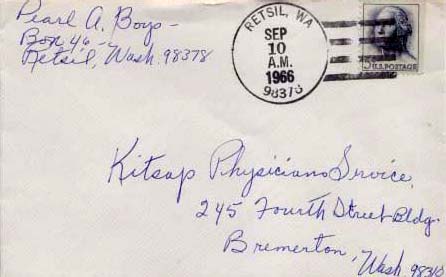 Pearl A. Boys -
Box 46 -
Retsil, Wash. 98378
RETSIL, WA
SEP
10
A.M.
1966
98378
5¢ U.S. POSTAGE
Kitsap Physicians Service,
245 Fourth Street Bldg.
Bremerton, Wash 98310